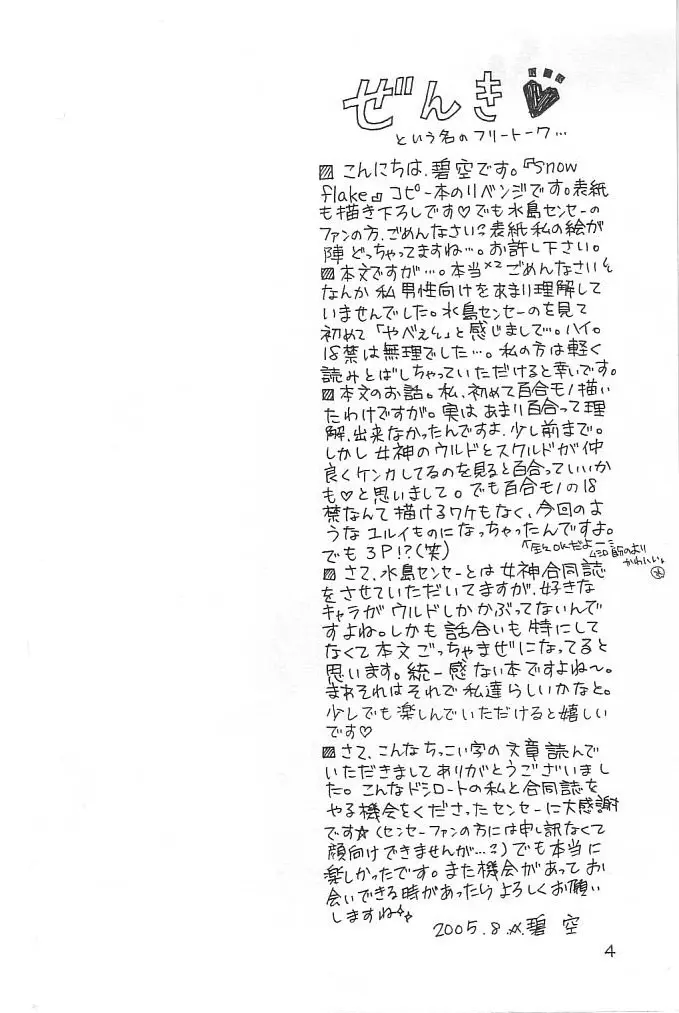 ぜんき♥
という名のフリートーク…
▨こんにちは、碧空です。『Snow
flake』コピー本のリベンジです。表紙
も描き下ろしです♡でも水島センセーの
ファンの方、ごめんなさい?表紙私の絵が
陣どっちゃってますね…。お許し下さい。
▨本文ですが…。本当×2ごめんなさい
なんか私男性向けをあまり理解して
いませんでした。水島センセーのを見て
初めて「やべぇ」と感じまして…。ハイ。
18禁は無理でした…。私の方は軽く
読みとばしちゃっていただけると幸いです。
▨本文のお話。私、初めて百合モノ描い
たわけですが。実はあまり百合って理
解、出来なかったんですよ、少し前まで。
しかし女神のウルドとスクルドが仲
良くケンカしてるのを見ると百合っていいか
も♡と思いまして。でも百合モノの18
禁なんて描けるワケもなく、今回のよ
うなユルイものになっちゃったんですよ。
でも3P!?(笑)
OKだよー
かわいい。
▨さて、水島センセーとは女神合同誌
をさせていただいてますが、好きな
キャラがウルドしかかぶってないんで
すよね。しかも話合いも特にして
なくて本文ごっちゃまぜになってると
思います。統一感ない本ですよね〜。
まぁそれはそれで私達らしいかなと。
少しでも楽しんでいただけると嬉しい
です♡
▨さて、こんなちっこい字の文章読んで
いただきましてありがとうございまし
た。こんなドシロートの私と合同誌を
やる機会をくださったセンセーに大感謝
です☆(センセーファンの方には申し訳なくて
顔向けできませんが…?)でも本当に
楽しかったです。また機会があってお
会いできる時があったらよろしくお願い
しますね
2005.8.☆.碧 空
4